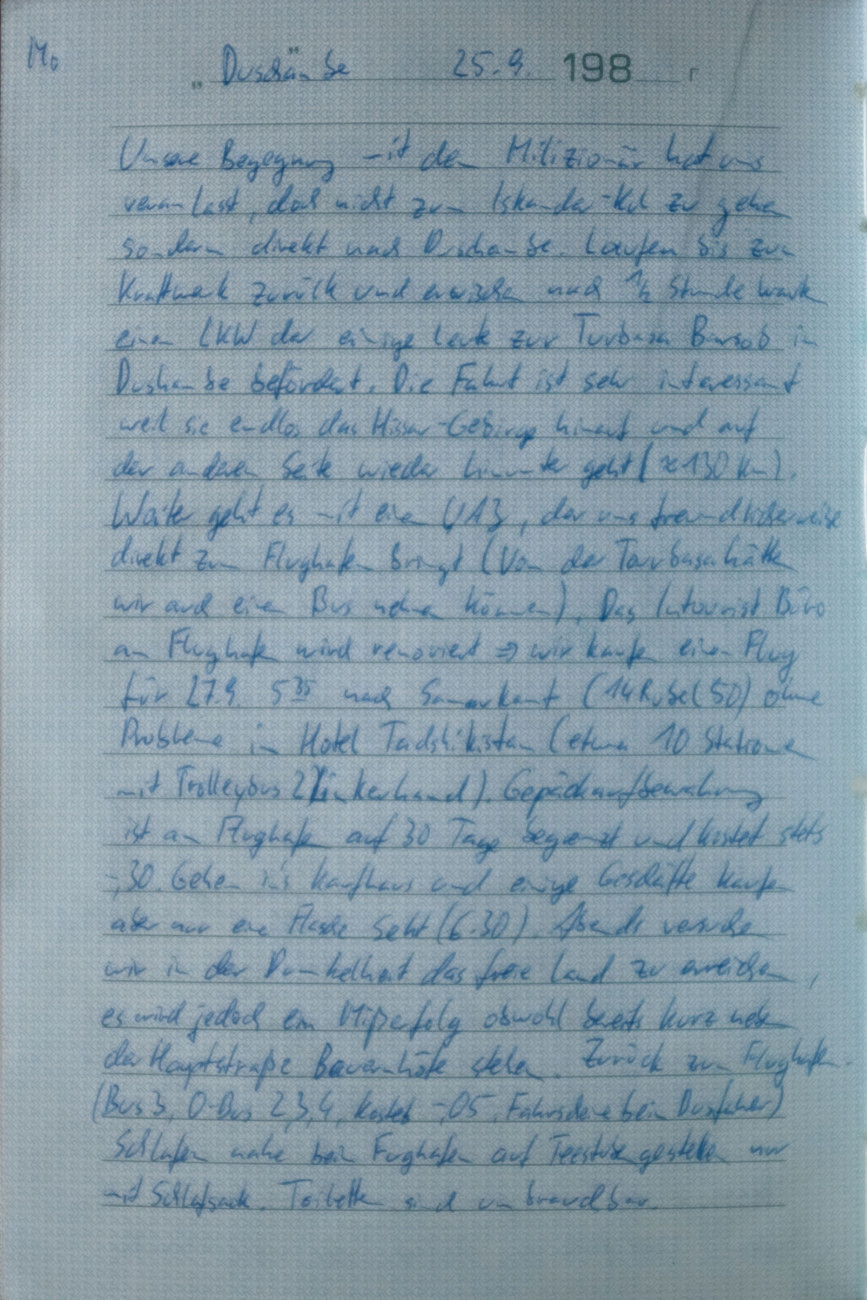 Mo
„Duschanbe" 25.9. 198 г
Unsere Begegnung mit dem Milizionär hat uns
veranlasst, doch nicht zum Iskander-Kul zu gehen
sondern direkt nach Duschanbe. Laufen bis zum
Kraftwerk zurück und erwischen nach 1/2 Stunde warten
einen LKW der einige Leute zur Turbasa Warsob in
Dushanbe befördert. Die Fahrt ist sehr interessant
weil sie endlos das Hissar-Gebirge hinauf und auf
der anderen Seite wieder hinunter geht (≈130 km).
Weiter geht es mit einem UAZ, der uns freundlicherweise
direkt zum Flughafen bringt (Von der Tourbasa hätten
wir auch einen Bus nehmen können). Das Intourist Büro
am Flughafen wird renoviert ⇒ wir kaufen einen Flug
für 27.9. 5 35 nach Samarkant (14 Rubel (50) ohne
Probleme im Hotel Tadshikistan (etwa 10 Stationen
mit Trolleybus 2)(linkerhand). Gepäckaufbewahrung
ist am Flughafen auf 30 Tage begrenzt und kostet stets
-,30. Gehen ins Kaufhaus und einige Geschäfte kaufen
aber nur eine Flasche Sekt (6.30). Abends versuchen
wir in der Dunkelheit das freie Land zu erreichen,
es wird jedoch ein Mißerfolg obwohl bereits kurz neben
der Hauptstraße Bauernhöfe stehen. Zurück zum Flughafen.
(Bus 3, O-Bus 2,3,4, kostet -,05, Fahrscheine beim Busfahrer)
Schlafen nahe beim Flughafen auf Teestubengestellen nur
mit Schlafsack. Toiletten sind unbrauchbar.